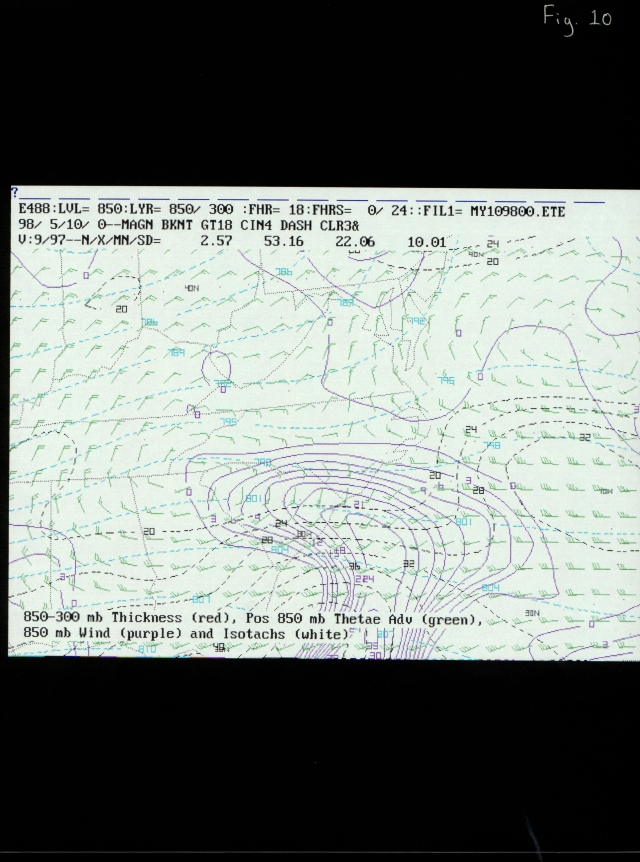 Fig. 10
?
E488:LVL= 850:LYR= 850/ 300 :FHR= 18:FHRS=  0/ 24::FIL1= MY109800.ETE
98/ 5/10/ 0--MAGN BKNT GT18 CIN4 DASH CLR3&
V:9/97--N/X/MN/SD=      2.57     53.16     22.06     10.01
24
40N
20
0
786
40N
20
786
789
792
0
0
789
0
795
0
0
795
24
798
32
798
20
3
28
0
70W
801
21
3
24
801
20
28
804
18
36
32
3
224
804
807
0
30N
0
850-300 mb Thickness (red), Pos 850 mb Thetae Adv (green),
850 mb Wind (purple) and Isotachs (white)
33
30
3
810